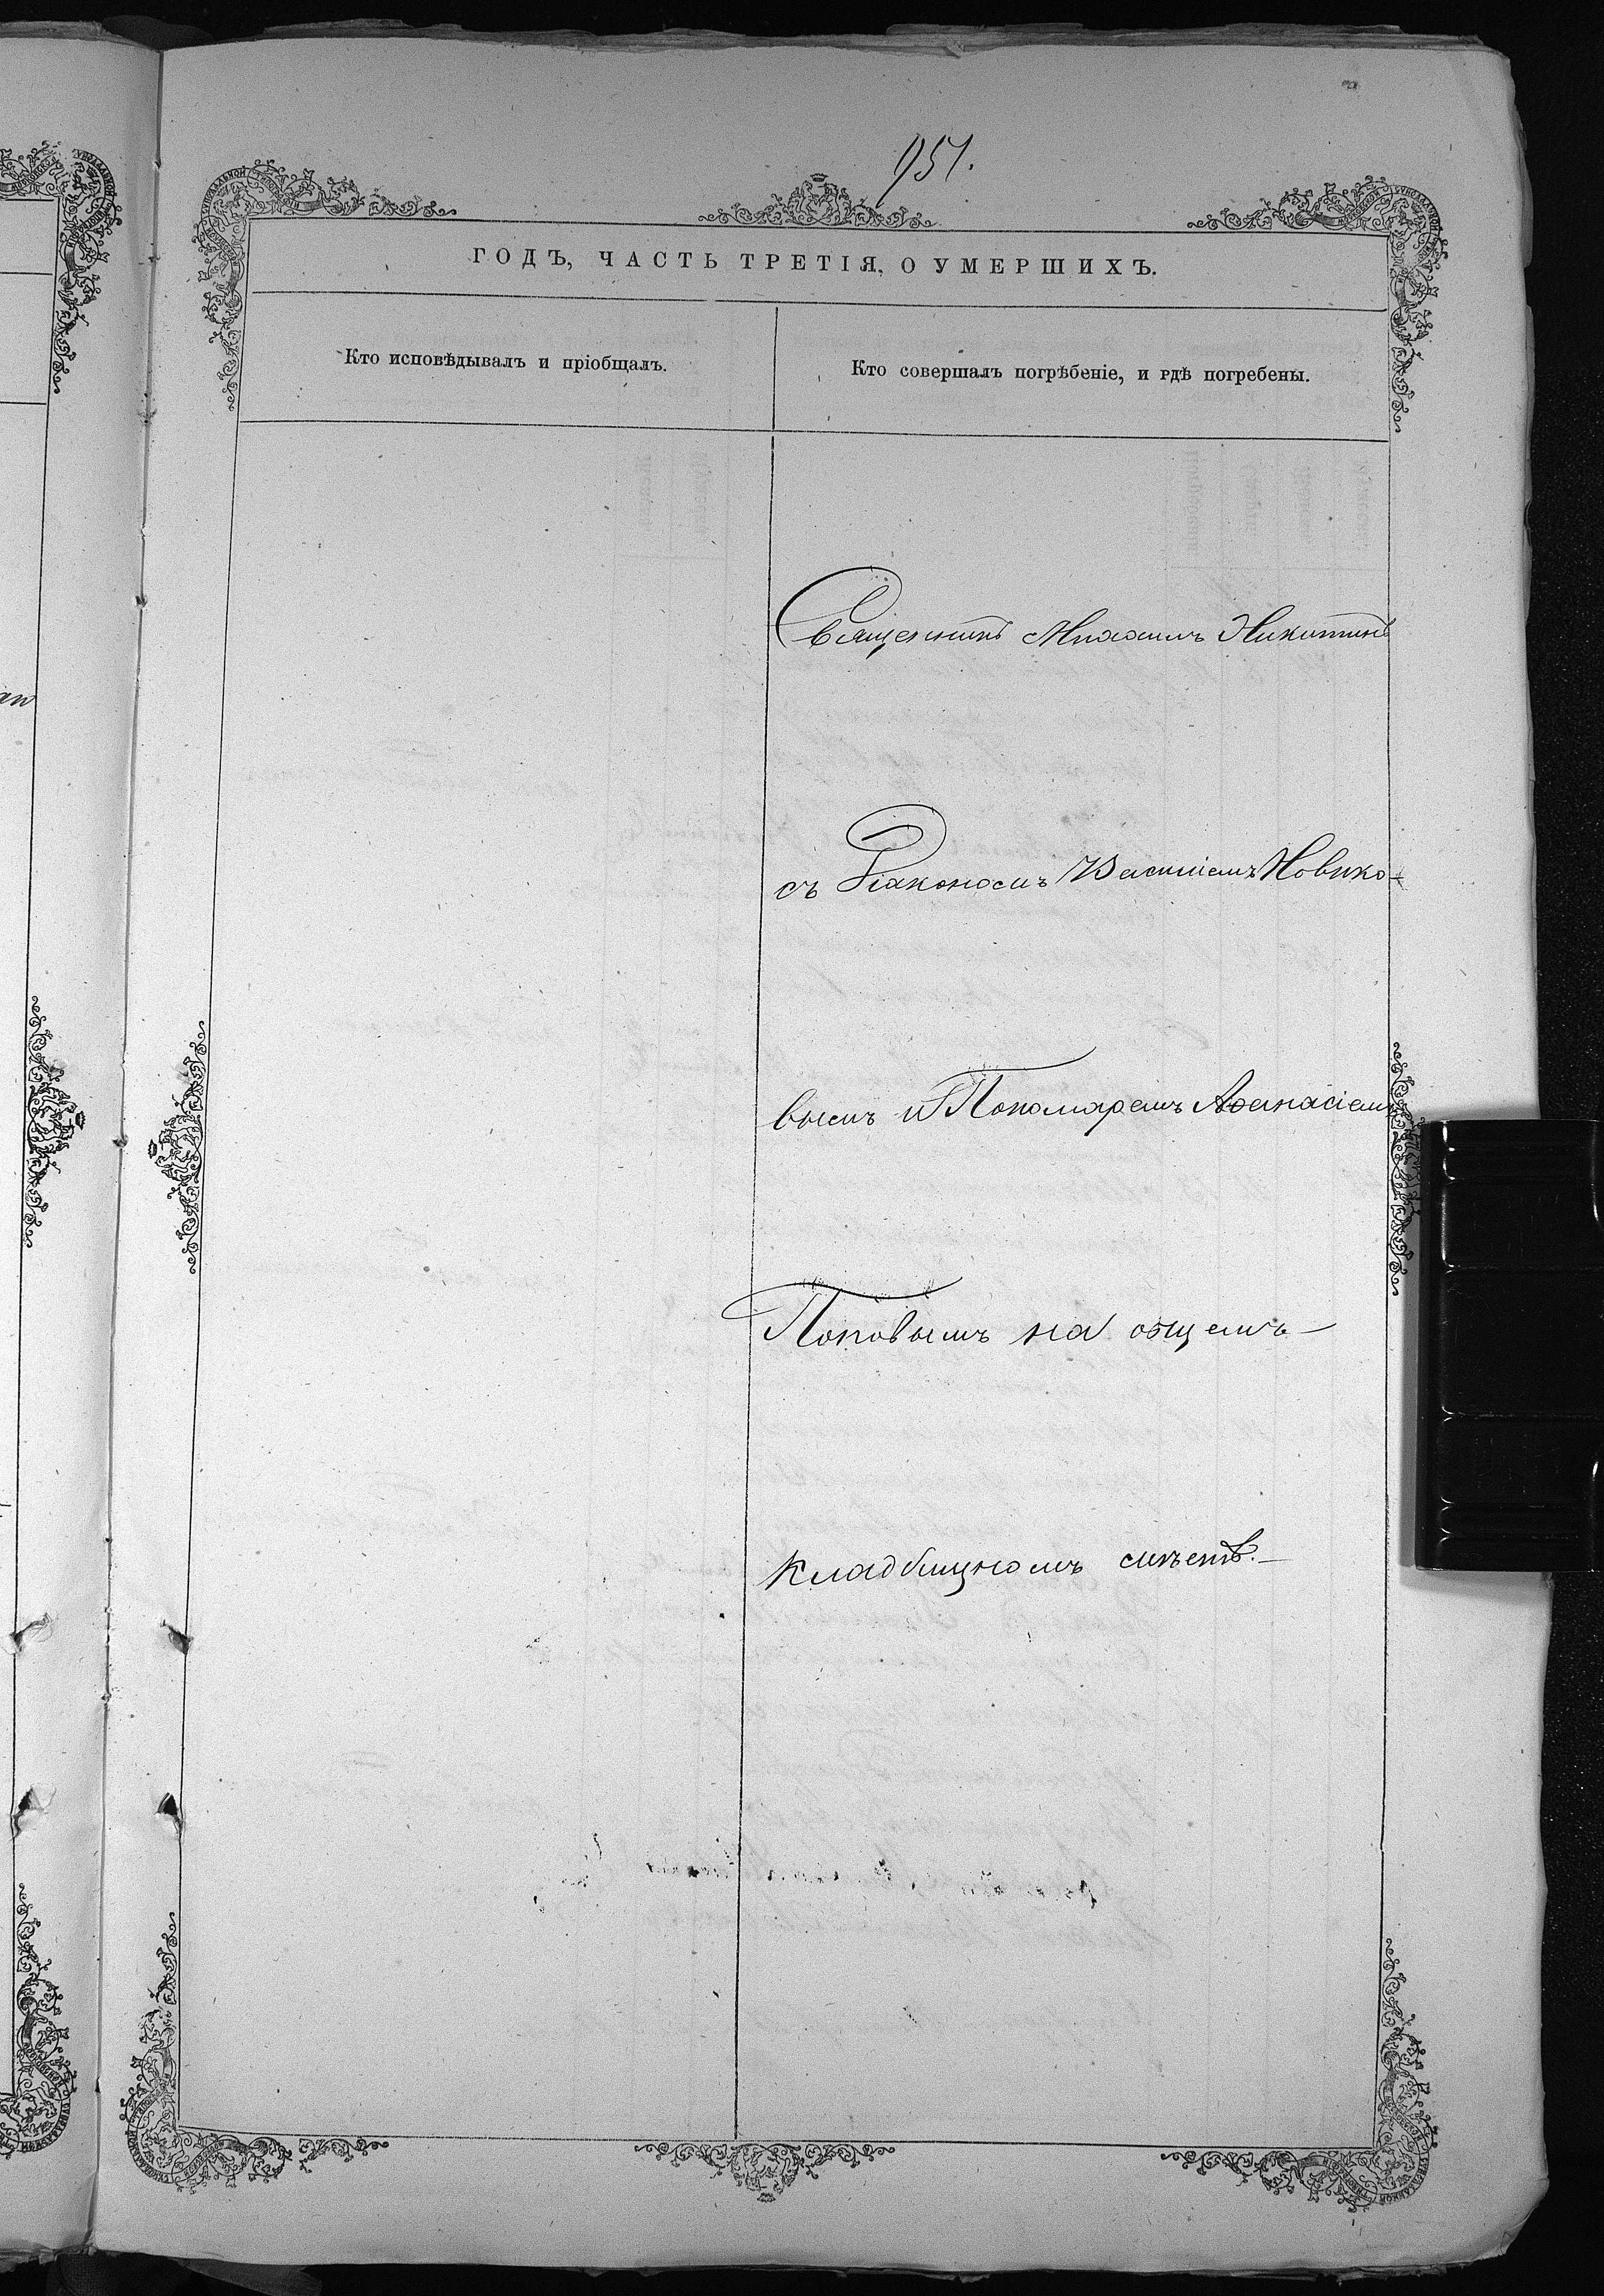 951.
ГОДЪ, ЧАСТЬ ТРЕТІЯ, О УМЕРШИХЪ.
Кто исповѣдывалъ и пріобщалъ.
Кто совершалъ погрѣбеніе, и гдѣ погребены.
Священникъ Михаилъ Никитинъ
съ Діакономъ Василіемъ Новико-
вымъ и Пономаремъ Аѳанасіемъ
Поповымъ на общемъ
кладбищномъ мѣстѣ.